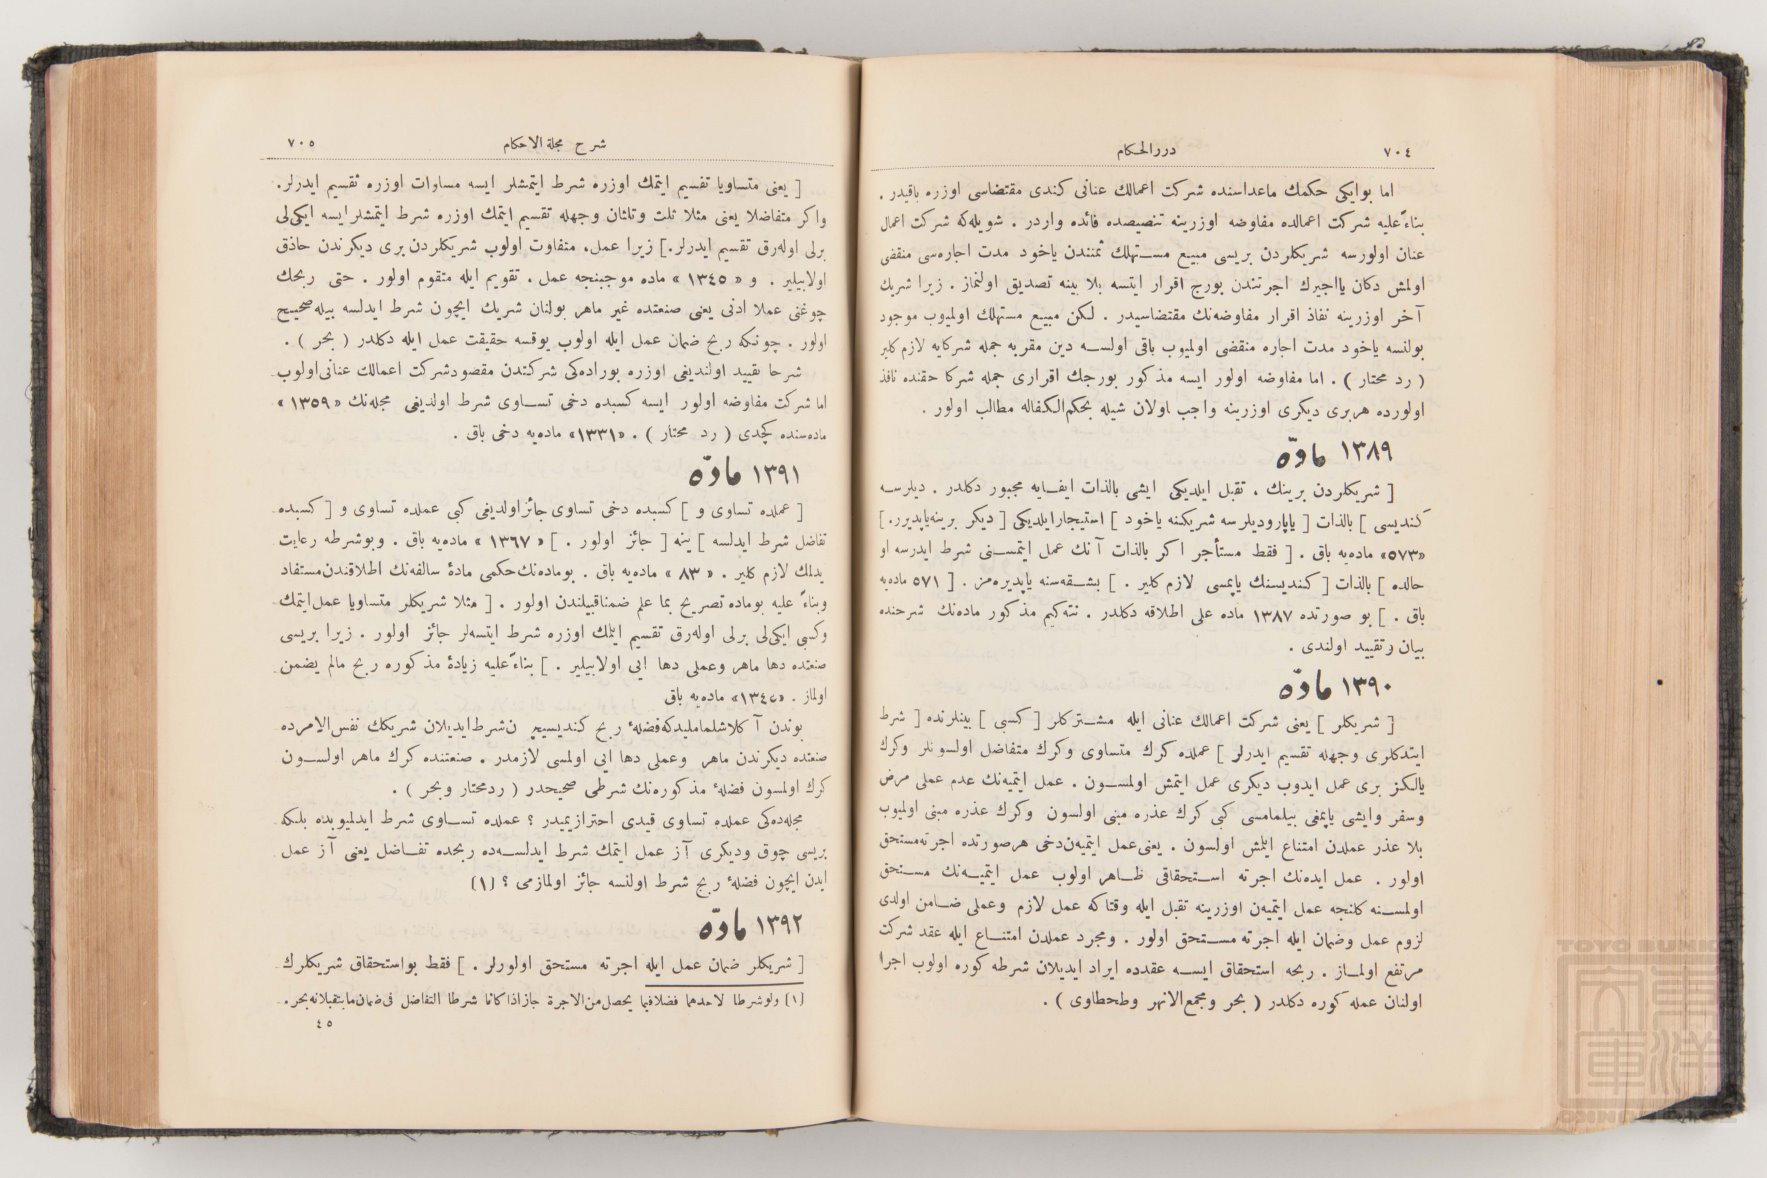 ٧٠٤
دررالحكام
اما بوايكى حكمك ماعداسنده شركت اعمالك عنانى كندى مقتضاسى اوزره باقيدر .
بناءً عليه شركت اعمالده مفاوضه اوزرينه تنصيصده فائده واردر . شويله‌كه شركت اعمال
عنان اولورسه شريكلردن بريسى مبيع مستهلك ثمنندن ياخود مدت اجاره‌سى منقضى
اولمش دكان يااجيرك اجرتندن بورج اقرار ايتسه بلا بينه تصديق اولنماز . زيرا شريك
آخر اوزرينه نفاذ اقرار مفاوضه‌نك مقتضاسيدر . لكن مبيع مستهلك اولميوب موجود
بولنسه ياخود مدت اجاره منقضى اولميوب باقى اولسه دين مقربه جمله شركايه لازم كلير
( رد محتار ) . اما مفاوضه اولور ايسه مذكور بورجك اقرارى جمله شركا حقنده نافذ
اولورده هربرى ديكرى اوزرينه واجب اولان شيله بحكم‌الكفاله مطالب اولور .
١٣٨٩ مادّه
[ شريكلردن برينك ، تقبل ايلديكى ايشى بالذات ايفايه مجبور دكلدر . ديلرسه
كنديسى ] بالذات [ ياپاروديلرسه شريكنه ياخود ] استيجارايلديكى [ ديكر برينه‌ياپديرر. ]
«٥٧٣» ماده‌يه باق . [ فقط مستأجر اكر بالذات آنك عمل ايتمسنى شرط ايدرسه او
حالده ] بالذات [ كنديسنك ياپمسى لازم كلير . ] بشقه‌سنه ياپديره‌مز . [ ٥٧١ ماده‌يه
باق . ] بو صورتده ١٣٨٧ ماده على اطلاقه دكلدر . نته‌كيم مذكور ماده‌نك شرحنده
بيان وتقييد اولندى .
١٣٩٠ مادّه
[ شريكلر ] يعنى شركت اعمالك عنانى ايله مشتركلر [ كسبى ] بينلرنده [ شرط
ايتدكلرى وجهله تقسيم ايدرلر ] عملده كرك متساوى وكرك متفاضل اولسونلر وكرك
يالكز برى عمل ايدوب ديكرى عمل ايتمش اولمسون . عمل ايتميه‌نك عدم عملى مرض
وسفر وايشى ياپمغى بيلمامسى كبى كرك عذره مبنى اولسون وكرك عذره مبنى اولميوب
بلا عذر عملدن امتناع ايلمش اولسون . يعنى‌عمل ايتميه‌ن‌دخى هرصورتده اجرته‌مستحق
اولور . عمل ايده‌نك اجرته استحقاقى ظاهر اولوب عمل ايتميه‌نك مستحق
اولمسنه كلنجه عمل ايتميه‌ن اوزرينه تقبل ايله وقتاكه عمل لازم وعملى ضامن اولدى
لزوم عمل وضمان ايله اجرته مستحق اولور . ومجرد عملدن امتناع ايله عقد شركت
مرتفع اولماز . ربحه استحقاق ايسه عقدده ايراد ايديلان شرطه كوره اولوب اجرا
اولنان عمله كوره دكلدر ( بحر ومجمع‌الانهر وطحطاوى ) .
شرح مجلة الاحكام
٧٠٥
[ يعنى متساويا تقسيم ايتمك اوزره شرط ايتمشلر ايسه مساوات اوزره تقسيم ايدرلر.
واكر متفاضلا يعنى مثلا ثلث وثلثان وجهله تقسيم ايتمك اوزره شرط ايتمشلرايسه ايكى‌لى
برلى اوله‌رق تقسيم ايدرلر.] زيرا عمل، متفاوت اولوب شريكلردن برى ديكرندن حاذق
اولابيلير . و « ١٣٤٥ » ماده موجبنجه عمل . تقويم ايله متقوم اولور . حتى ربحك
چوغنى عملا ادنى يعنى صنعتده غير ماهر بولنان شريك ايچون شرط ايدلسه بيله‌صحيح
اولور . چونكه ربح ضمان عمل ايله اولوب يوقسه حقيقت عمل ايله دكلدر ( بحر ) .
شرحا تقييد اولنديغى اوزره بوراده‌كى شركتدن مقصودشركت اعمالك عنانى‌اولوب
اما شركت مفاوضه اولور ايسه كسبده دخى تساوى شرط اولديغى مجله‌نك « ١٣٥٩ »
ماده‌سنده كچدى ( رد محتار ) . «١٣٣١» ماده‌يه دخى باق .
١٣٩١ مادّه
[ عملده تساوى و ] كسبده دخى تساوى جائزاولديغى كبى عملده تساوى و [ كسبده
تفاضل شرط ايدلسه ] ينه [ جائز اولور . ] « ١٣٦٧ » ماده‌يه باق . وبوشرطه رعايت
يدلمك لازم كلير . « ٨٣ » ماده‌يه باق . بوماده‌نك‌حكمى مادۀ سالفه‌نك اطلاقندن‌مستفاد
وبناءً عليه بوماده تصريح بما علم ضمناقبيلندن اولور . [ مثلا شريكلر متساويا عمل‌ايتمك
وكسبى ايكى‌لى برلى اوله‌رق تقسيم ايلمك اوزره شرط ايتسه‌لر جائز اولور . زيرا بريسى
صنعتده دها ماهر وعملى دها ايى اولابيلير . ] بناءً عليه زيادۀ مذكوره ربح مالم يضمن
اولماز . «١٣٤٧» ماده‌يه باق
بوندن آكلاشلماملیدركه‌فضلۀ ربح كنديسيچون‌شرط‌ايديلان شريكك نفس‌الامرده
صنعتده ديكرندن ماهر وعملى دها ايى اولمسى لازمدر . صنعتنده كرك ماهر اولسون
كرك اولمسون فضلۀ مذكوره‌نك شرطى صحيحدر ( ردمحتار وبحر ) .
مجله‌ده‌كى عملده تساوى قيدى احترازيميدر ؟ عملده تساوى شرط ايدلميوبده بلكه
بريسى چوق وديكرى آز عمل ايتمك شرط ايدلسه‌ده ربحده تفاضل يعنى آز عمل
ايدن ايچون فضلۀ ربح شرط اولنسه جائز اولمازمى ؟ (١)
١٣٩٢ مادّه
[ شريكلر ضمان عمل ايله اجرته مستحق اولورلر . ] فقط بواستحقاق شريكلرك
(١) ولوشرطا لاحدهما فضلافيما يحصل‌من‌الاجرة جازاذاكانا شرطا التفاضل فى‌ضمان‌مايتقبلانه‌بحر.
٤٥
TOYO BUNKO
東洋文庫